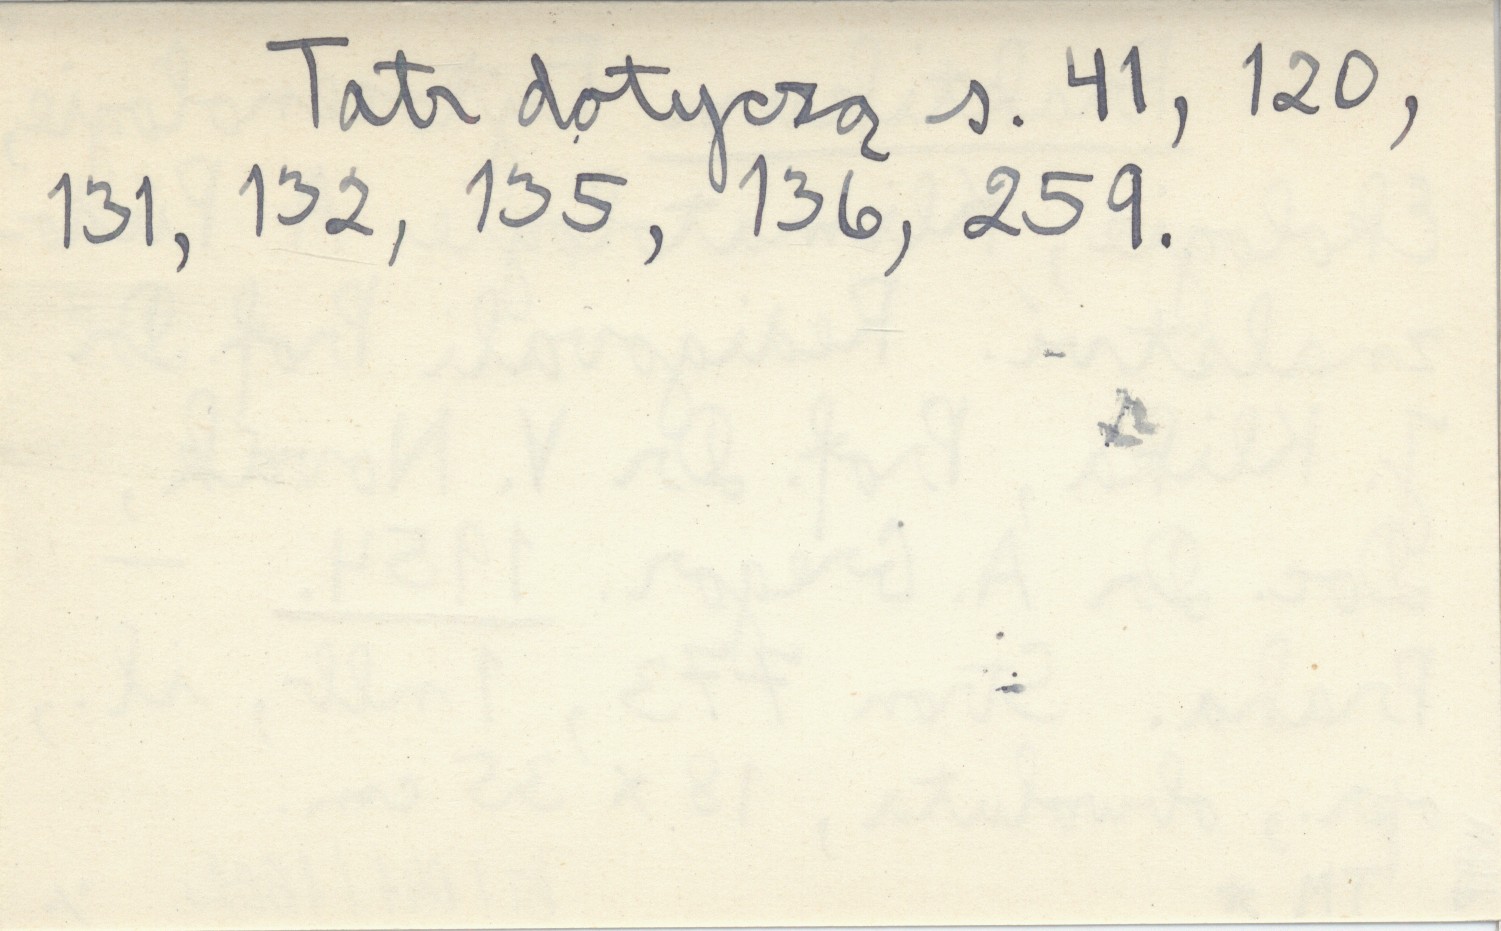 Tatr dotyczą s. 41, 120,
131, 132, 135, 136, 259.